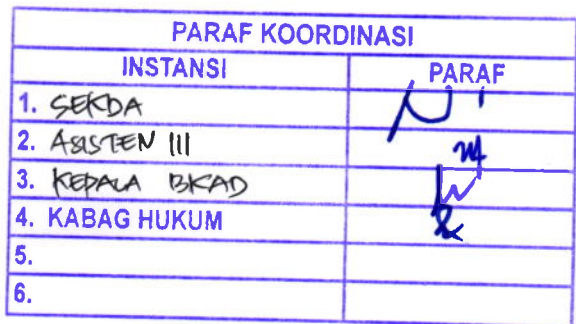 PARAF KOORDINASI
INSTANSI PARAF
1. SEKDA
2. ASISTEN III
3. KEPALA BKAD
4. KABAG HUKUM
5.
6.